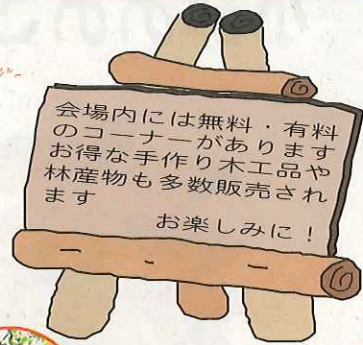 会場内には無料・有料
のコーナーがあります
お得な手作り木工品や
林産物も多数販売され
ます
お楽しみに！